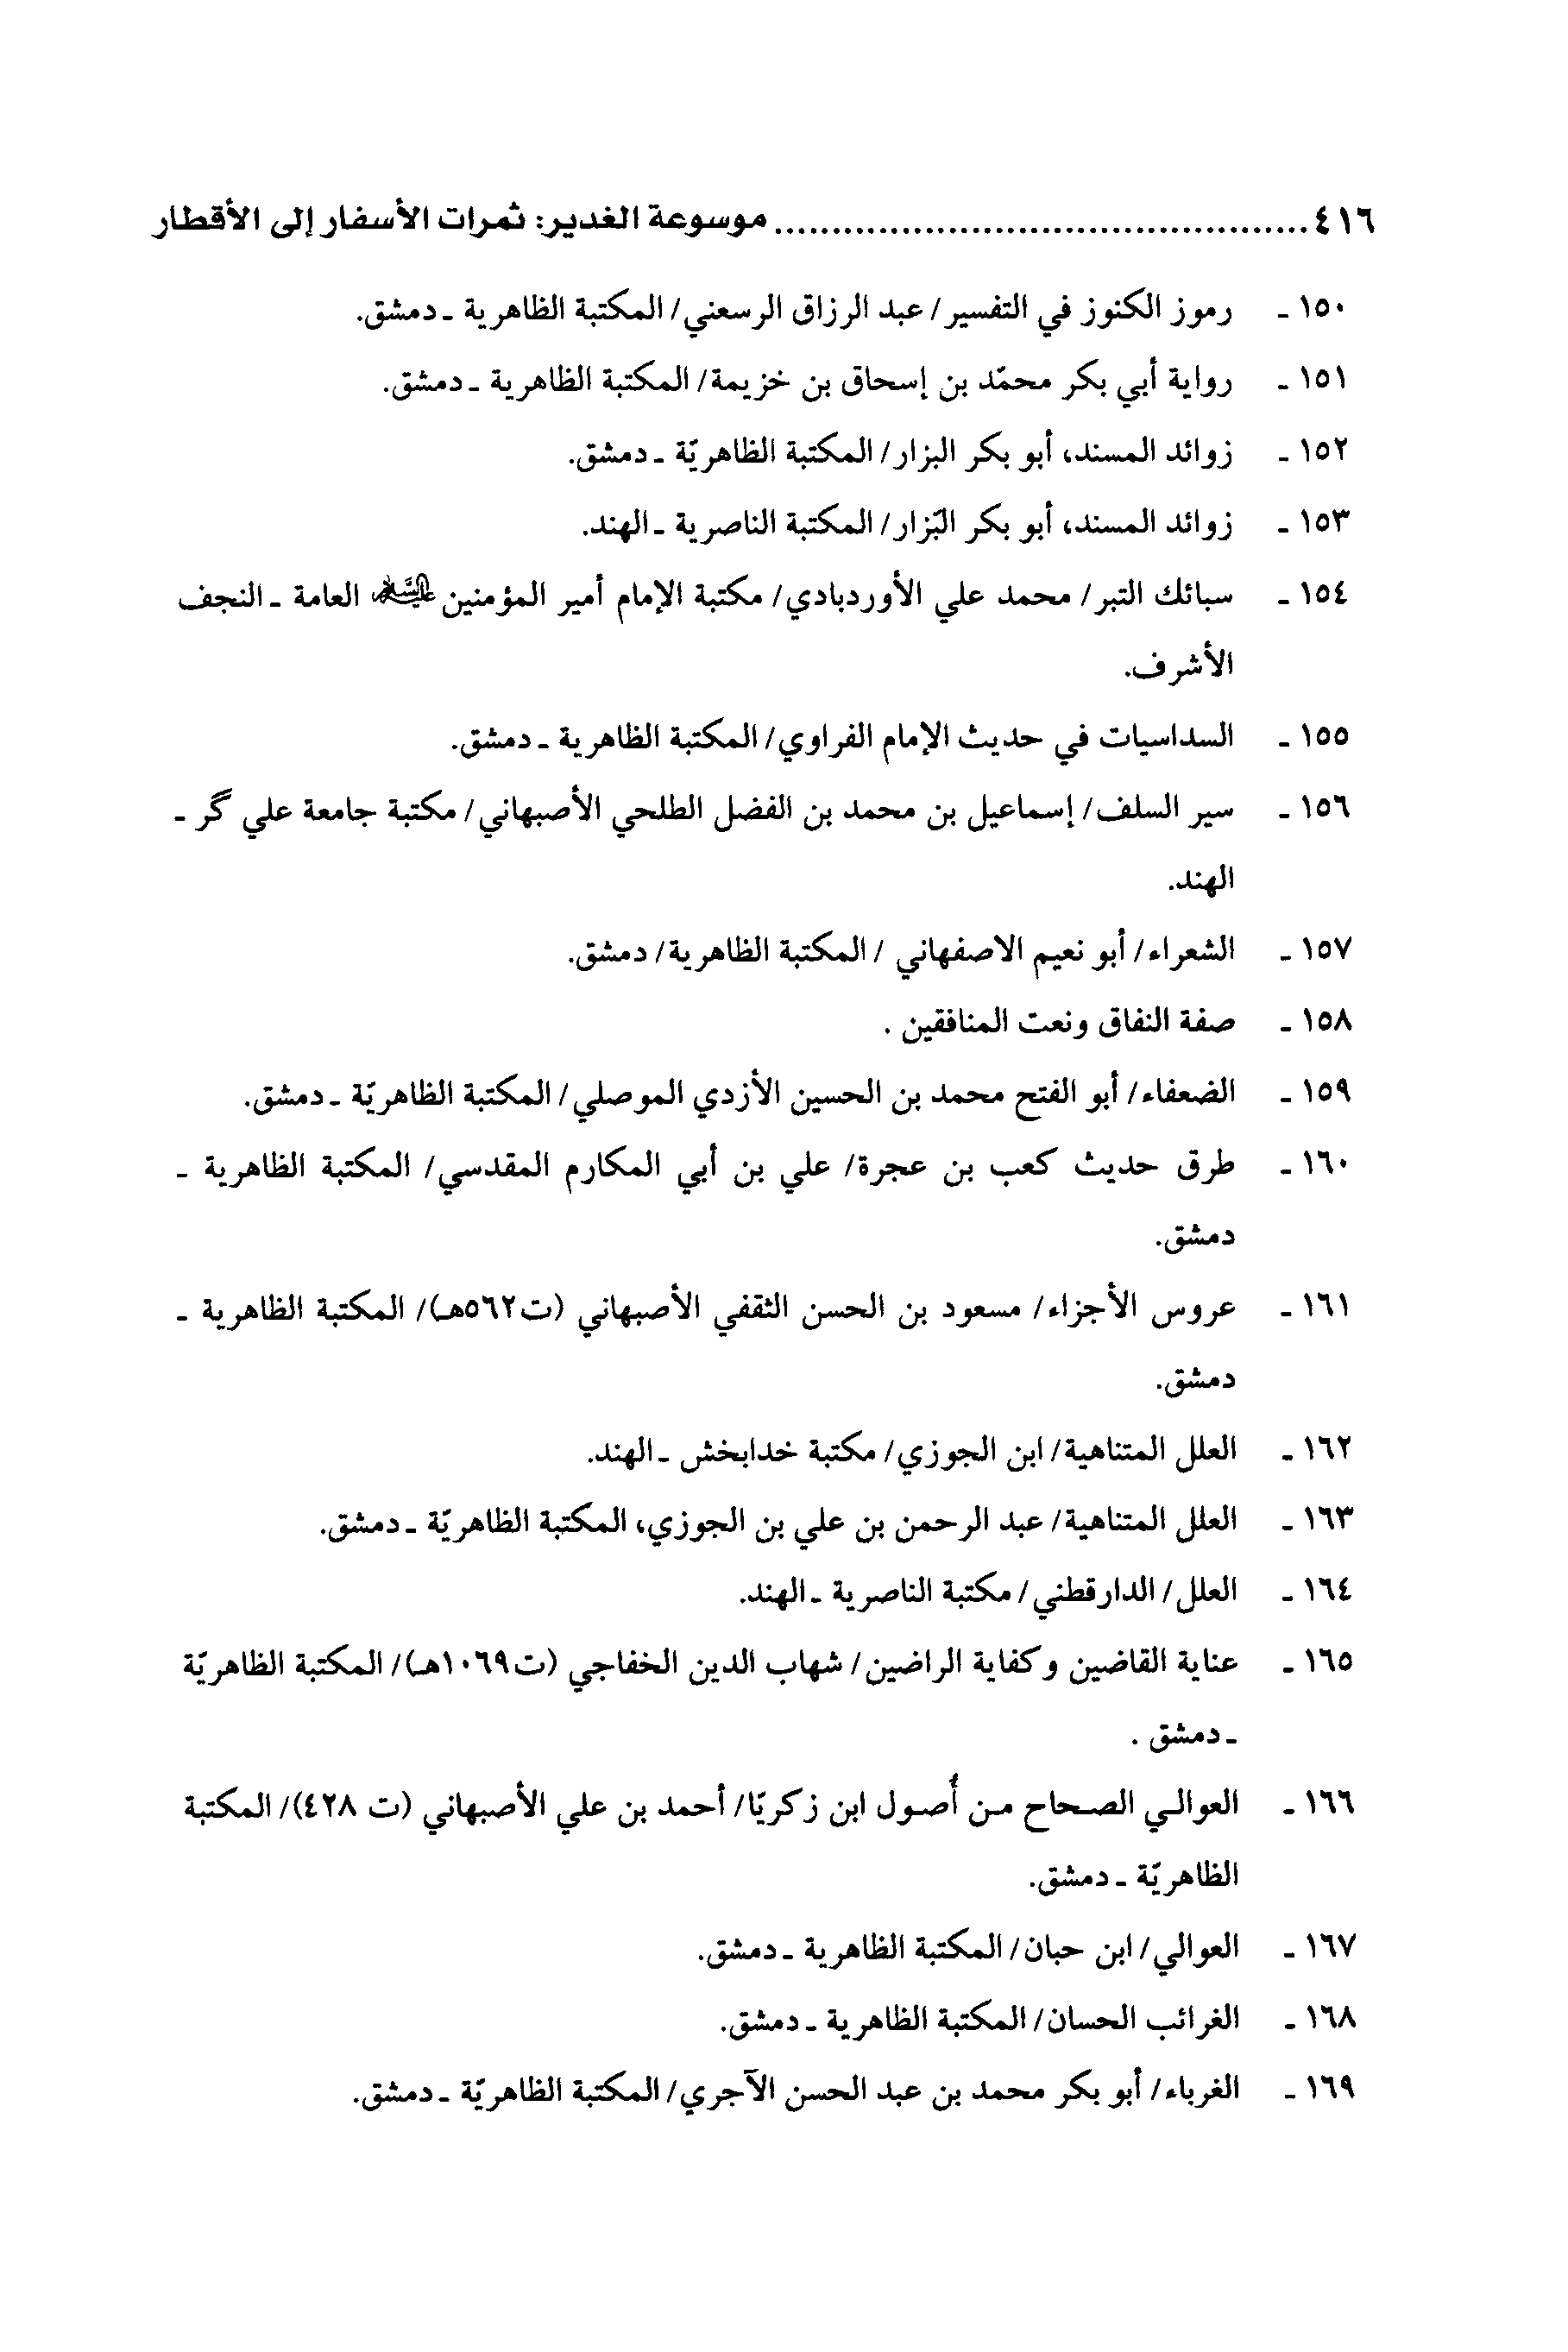 ٤١٦ .............................................. موسوعة الغدير: ثمرات الأسفار إلى الأقطار
١٥٠ ـ رموز الكنوز في التفسير/ عبد الرزاق الرسعني/ المكتبة الظاهرية ـ دمشق.
١٥١ ـ رواية أبي بكر محمّد بن إسحاق بن خزيمة/ المكتبة الظاهرية ـ دمشق.
١٥٢ ـ زوائد المسند، أبو بكر البزار/ المكتبة الظاهريّة ـ دمشق.
١٥٣ ـ زوائد المسند، أبو بكر البّزار/ المكتبة الناصرية ـ الهند.
١٥٤ ـ سبائك التبر/ محمد علي الأوردبادي/ مكتبة الإمام أمير المؤمنين عليه السلام العامة ـ النجف
الأشرف.
١٥٥ ـ السداسيات في حديث الإمام الفراوي/ المكتبة الظاهرية ـ دمشق.
١٥٦ ـ سير السلف/ إسماعيل بن محمد بن الفضل الطلحي الأصبهاني/ مكتبة جامعة علي گر ـ
الهند.
١٥٧ ـ الشعراء/ أبو نعيم الاصفهاني / المكتبة الظاهرية/ دمشق.
١٥٨ ـ صفة النفاق ونعت المنافقين .
١٥٩ ـ الضعفاء/ أبو الفتح محمد بن الحسين الأزدي الموصلي/ المكتبة الظاهريّة ـ دمشق.
١٦٠ ـ طرق حديث كعب بن عجرة/ علي بن أبي المكارم المقدسي/ المكتبة الظاهرية ـ
دمشق.
١٦١ ـ عروس الأجزاء/ مسعود بن الحسن الثقفي الأصبهاني (ت٥٦٢هـ)/ المكتبة الظاهرية ـ
دمشق.
١٦٢ ـ العلل المتناهية/ ابن الجوزي/ مكتبة خدابخش ـ الهند.
١٦٣ ـ العلل المتناهية/ عبد الرحمن بن علي بن الجوزي، المكتبة الظاهريّة ـ دمشق.
١٦٤ ـ العلل/ الدارقطني/ مكتبة الناصرية ـ الهند.
١٦٥ ـ عناية القاضين وكفاية الراضين/ شهاب الدين الخفاجي (ت١٠٦٩هـ)/ المكتبة الظاهريّة
ـ دمشق .
١٦٦ ـ العوالي الصحاح من أُصول ابن زكريّا/ أحمد بن علي الأصبهاني (ت ٤٢٨)/ المكتبة
الظاهريّة ـ دمشق.
١٦٧ ـ العوالي/ ابن حبان/ المكتبة الظاهرية ـ دمشق.
١٦٨ ـ الغرائب الحسان/ المكتبة الظاهرية ـ دمشق.
١٦٩ ـ الغرباء/ أبو بكر محمد بن عبد الحسن الآجري/ المكتبة الظاهريّة ـ دمشق.